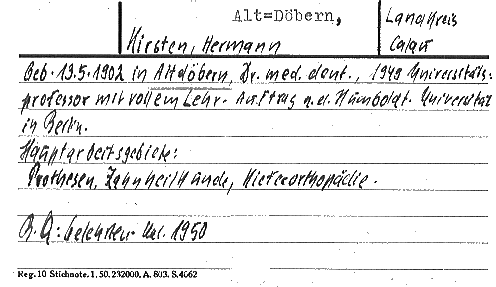 Alt=Döbern,
Landkreis
Calau
Kirsten, Hermann
Geb. 13.5.1902 in Altdöbern, Dr. med. dent., 1949 Universitäts-
professor mit vollem Lehr-Auftrag a.d. Humboldt-Universität
in Berlin.
Hauptarbeitsgebiete:
Prothesen, Zahnheilkunde, Kieferorthopädie.
Gelehrten-Kal. 1950
Reg. 10 Stichnote. 1. 50. 232000. A. 803. S. 4662